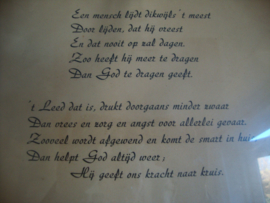 Een mensch lijdt dikwijls 't meest
Door lijden, dat hij vreest
En dat nooit op zal dagen.
Zoo heeft hij meer te dragen
Dan God te dragen geeft.
't Leed dat is, drukt doorgaans minder zwaar
Dan vrees en zorg en angst voor allerlei gevaar.
Zooveel wordt afgewend en komt de smart in huis
Dan helpt God altijd weer;
Hij geeft ons kracht naar kruis.